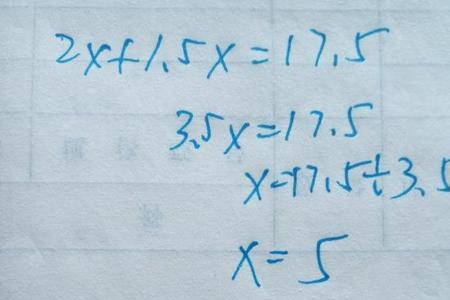 2x+1.5x=17.5
3.5x=17.5
x=17.5÷3.5
x=5